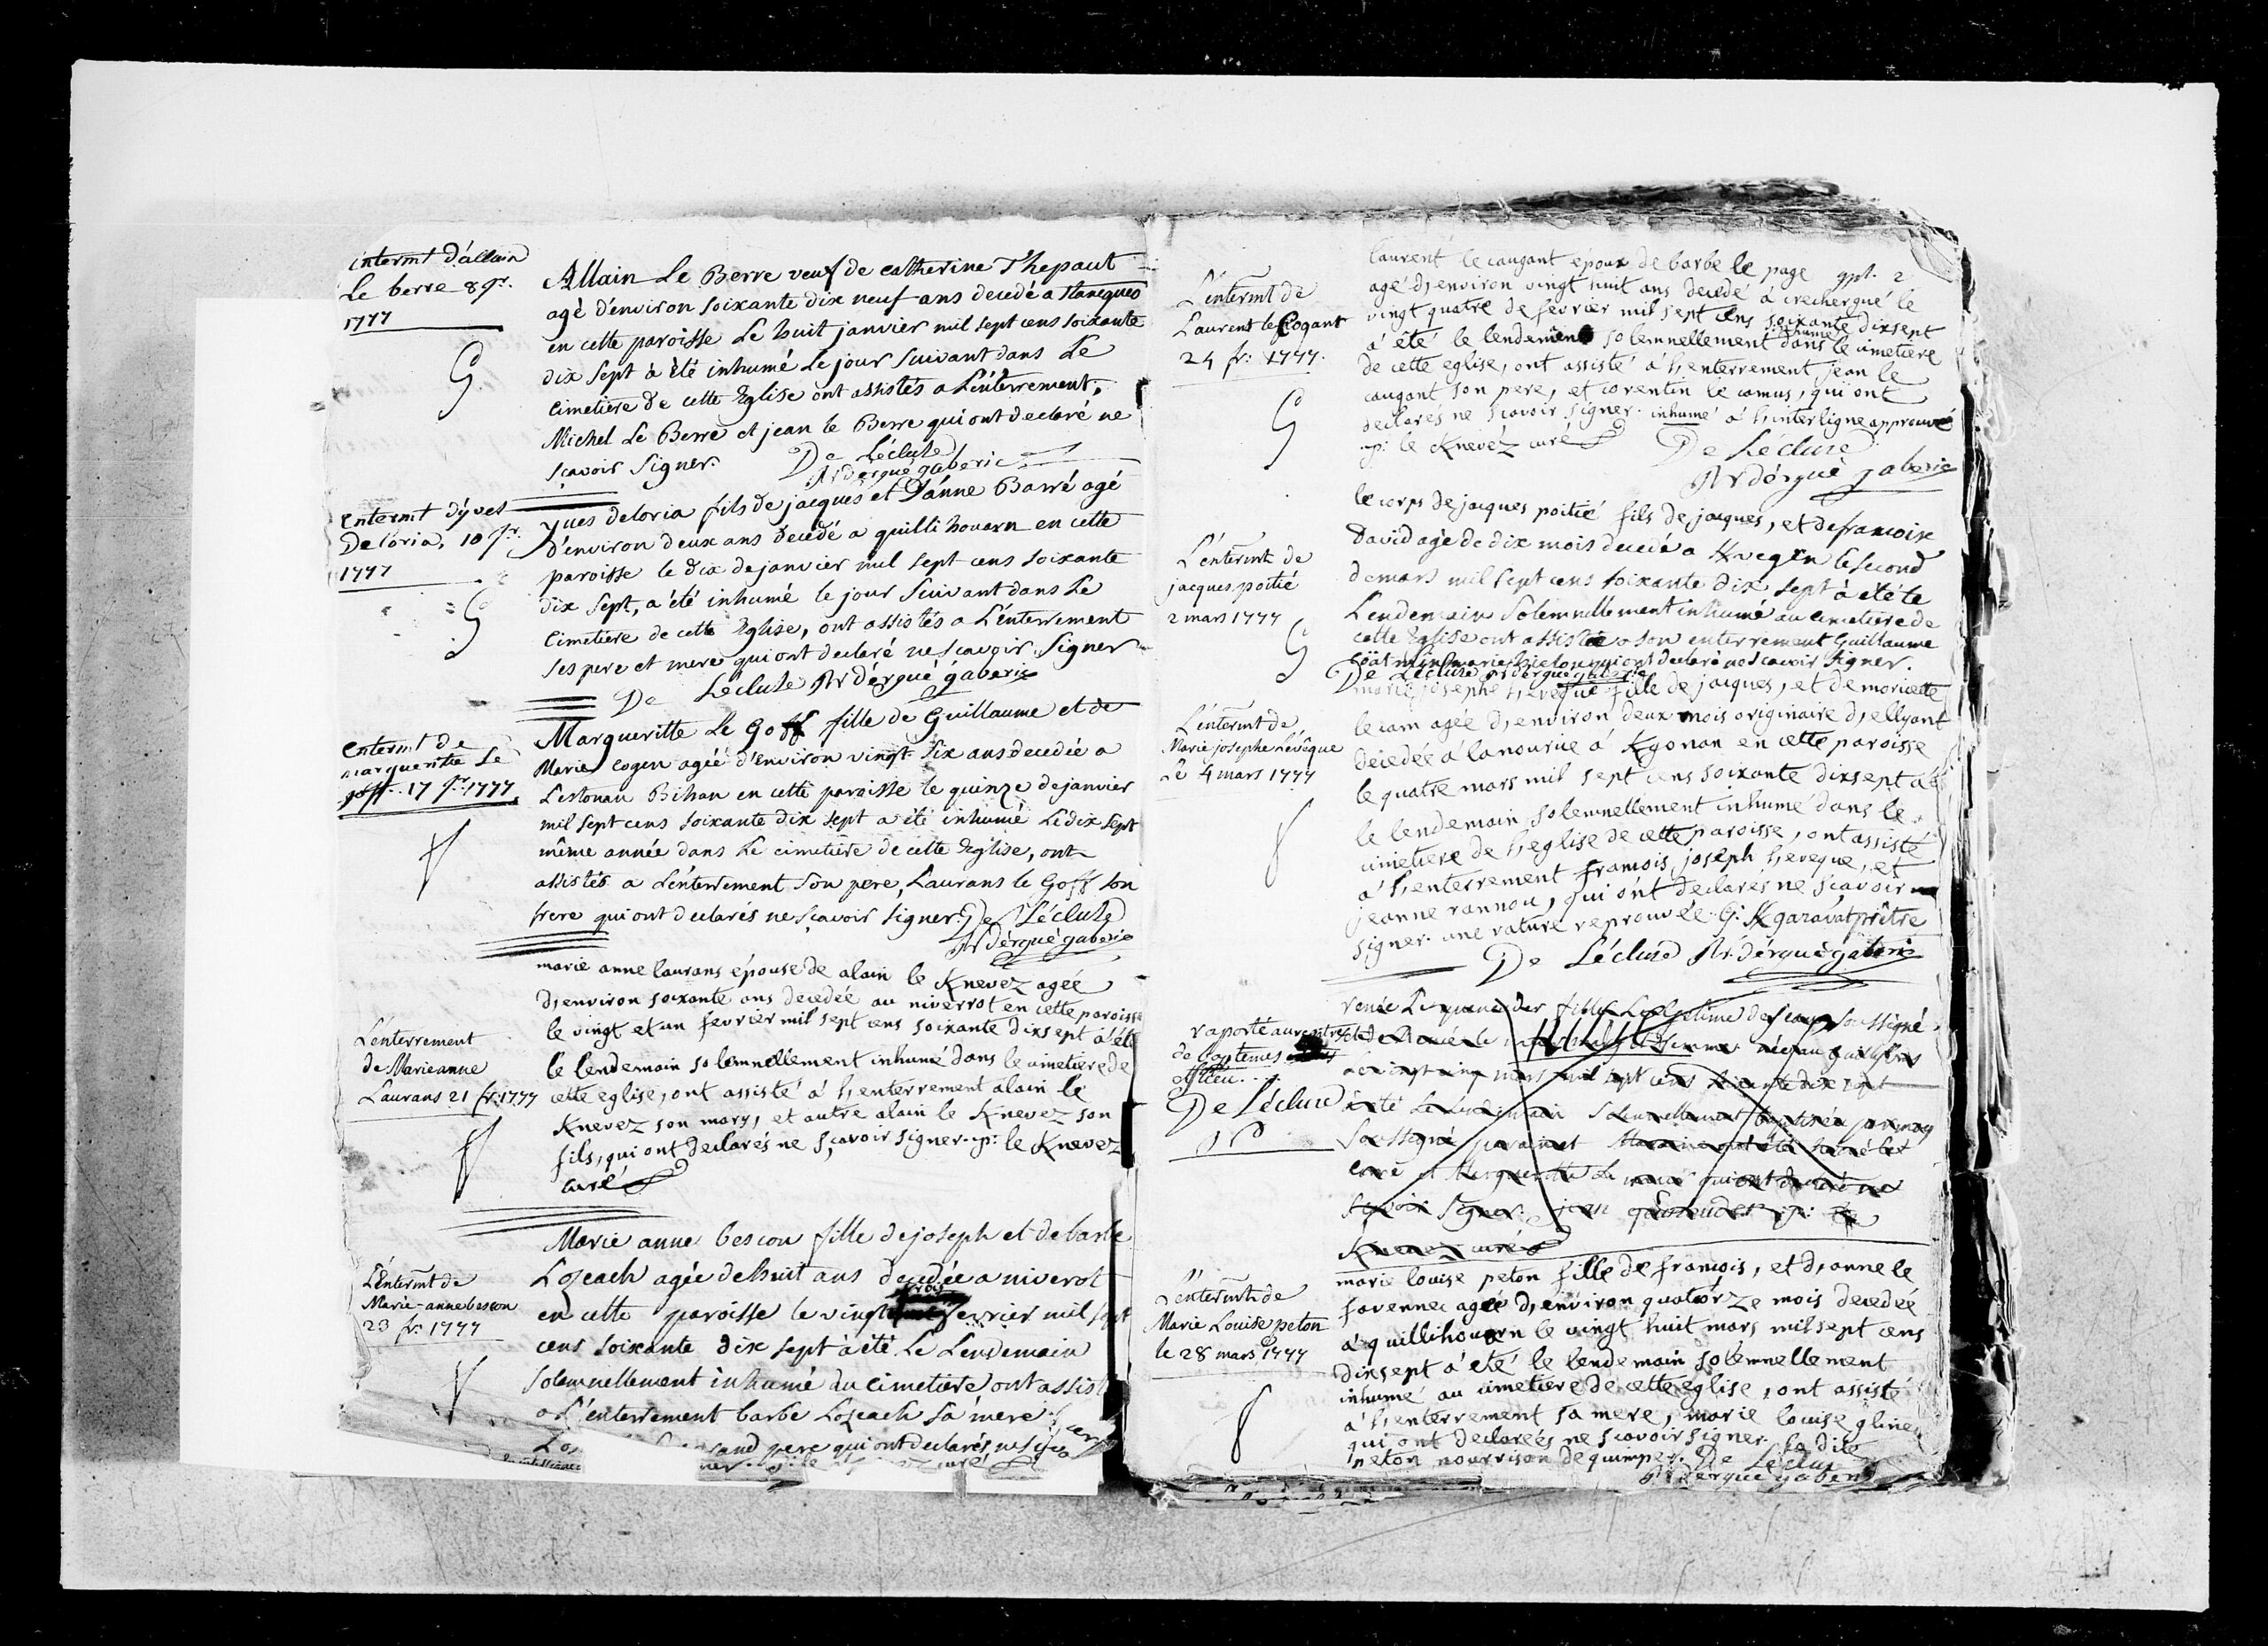 interm̃t d'allain
Le berre 8 jr.
1777
Allain Le Berre veuf de catherine Thepaut
agé d'environ soixante dix neuf ans decedé a
en cette paroisse Le huit janvier mil sept cens soixante
dix sept à été inhumé Le jour suivant dans Le
Cimetiere de cette Eglise ont assistés a L'enterrement,
Michel Le Berre et jean le Berre qui ont declaré ne
sçavoir signer. De Lécluse
Rr dérgué gaberic
enterm̃t d'yves
Deloria, 10 jr.
1777
yves deloria fils de jacques et D'anne Barré agé
d'environ deux ans decedé a quilli houarn en cette
paroisse le dix de janvier mil sept cens soixante
dix sept, a été inhumé le jour suivant dans Le
Cimetiere de cette Eglise, ont assistés a L'enterrement
ses pere et mere qui ont declaré ne sçavoir signer
De Lécluse Rr dérgué gaberic
enterm̃t de
marguerite Le
goff 17 jr. 1777
Margueritte Le Goff fille de Guillaume et de
Marie cogen agée d'environ vingt six ans decedée a
Lestonan Bihan en cette paroisse le quinze de janvier
mil sept cens soixante dix sept a été inhumé Le dix sept
même année dans Le cimetiere de cette Eglise, ont
assistés a L'enterrement son pere, Laurans le Goff son
frere qui ont declarés ne sçavoir signer. De Lécluse
Rr dérgué gaberic
L'enterrement
de Marie anne
Laurans 21 fr. 1777
marie anne laurans épouse de alain le Knevez agée
d'environ soixante ans decedée au niverrot en cette paroisse
le vingt et un fevrier mil sept cens soixante dix sept à été
le lendemain solemnellement inhumé dans le cimetiere de
cette eglise, ont assisté à l'enterrement alain le
Knevez son mary, et autre alain le Knevez son
fils, qui ont declarés ne sçavoir signer. p: le Knevez
curé
L'Enterm̃t de
Marie-anne bescon
23 fr. 1777
Marie anne bescon fille de joseph et de barbe
Lozeach agée de huit ans decedée a niverot
en cette paroisse le vingt trois fevrier mil sept
cens soixante dix sept à été Le Lendemain
solemnellement inhumé au cimetiere ont assisté
a L'enterrement barbe Lozeach sa mere
pere qui ont declarés ne
curé
L'enterm̃t de
Laurent le Cogant
24 fr. 1777.
laurent le caugant epoux de barbe le page gpt. 2
agé d'environ vingt huit ans decedé à crechergué le
vingt quatre de fevrier mil sept cens soixante dix sept
a été le lendemain solemnellement inhumé dans le cimetiere
de cette eglise, ont assisté à l'enterrement jean le
caugant son pere, et corentin le camus, qui ont
declarés ne sçavoir signer. inhumé à l'interligne approuvé
p: le Knevez curé De Lécluse
Rr dérgué gaberic
L'enterm̃t de
jacques poitié
2 mars 1777
le corps de jacques poitié fils de jacques, et de francoise
David agé de dix mois decedé a le second
de mars mil sept cens soixante dix sept à été le
Lendemain solemnellement inhumé au cimetiere de
cette Eglise ont assisté a son enterrement Guillaume
marie qui ont declaré ne sçavoir signer.
De Lécluse Rr dérgué gaberic
L'enterm̃t de
Marie josephe Levêque
Le 4 mars 1777
marie josephe l'eveque fille de jacques, et de moricette
le cam agée d'environ deux mois originaire d'ellyant
decedée à la nourice à Kgonan en cette paroisse
le quatre mars mil sept cens soixante dix sept a été
le lendemain solemnellement inhumé dans le
cimetiere de l'eglise de cette paroisse, ont assisté
à l'enterrement francois, joseph l'eveque, et
jeanne rannou, qui ont declarés ne sçavoir
signer. une rature reprouvée. G: Kgaravat prêtre
De Lécluse Rr. dérgué gaberic
raporté au registre
de baptemes
De Lécluse
Rr
renée fille Legitime de jean soussigné
et de
le vingt cinq mars mil sept cens soixante dix sept
à été Le Lendemain solemnellement baptisée par moy
soussigné parain et
et Marguerite Le qui ont declaré ne
sçavoir signer. jean p: le
Knevez curé
L'enterm̃t de
Marie Louise peton
le 28 mars 1777
marie louise peton fille de francois, et d'anne le
favennec agée d'environ quatorze mois decedée
à quillihouarn le vingt huit mars mil sept cens
dix sept à été le lendemain solemnellement
inhumé au cimetiere de cette eglise, ont assisté
à l'enterrement sa mere, marie louise
qui ont declarées ne sçavoir signer. la dite
peton nourrison de quimper. De Lécluse
Rr dergué gaberic